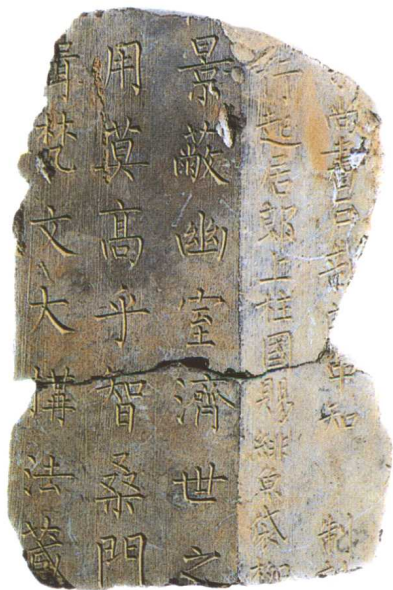 尚書司 知 制
行起居郎上柱國賜緋魚袋柳
景蔽幽室濟世之
用莫高乎智桑門
梵文大搆法藏